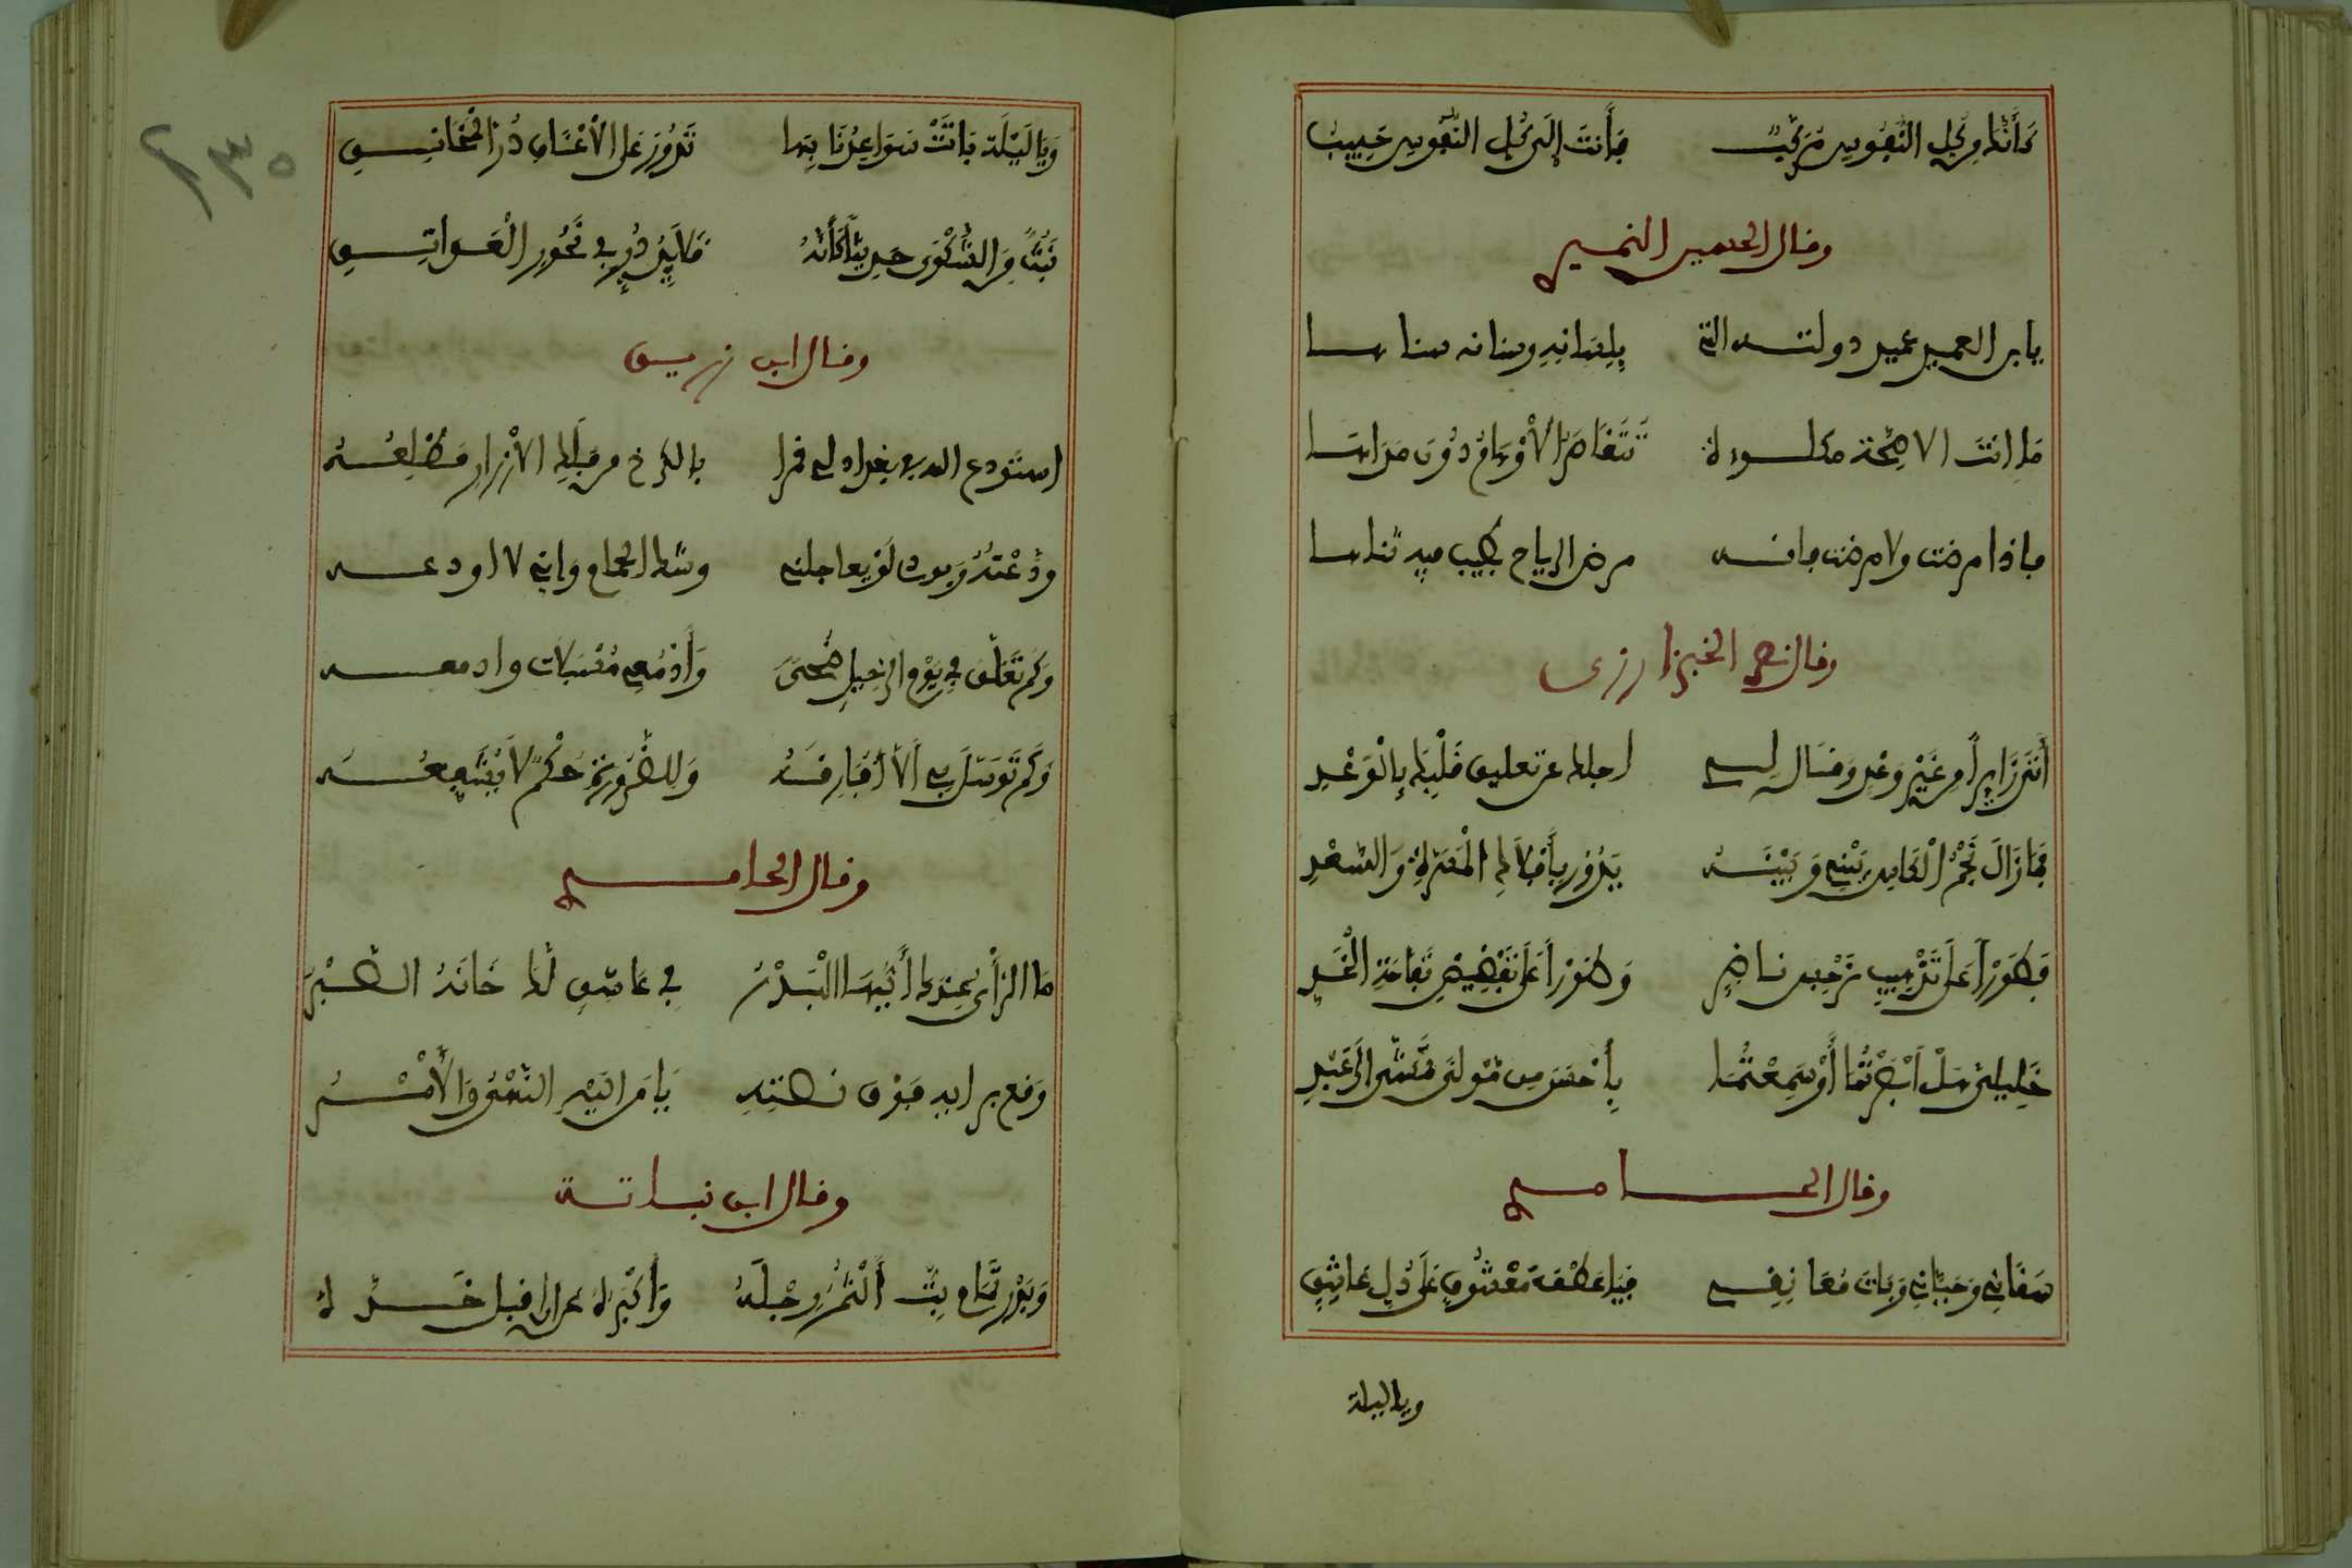 كَأَنَّكَ مِن كُلِّ النُّفُوسِ مُرَكَّبٌ فَأَنتَ إِلَى كُلِّ النُّفُوسِ حَبِيبُ
وقال الحسين النميري
يابن العميد عميد دولته التي بلسانه وسنانه سناها
ما أنتَ إلا صِحَّة مكلوءة تَتَقَاصَرُ الأَوْهَامُ دُونَ مَدَاهَا
فإذا مرضت ولا مرضت فإنه مرض الرياح بطيب فيه ثناها
وقال نصر الخبزارزى
أَتَى زَايِراً مِن غَيْرِ وَعْدٍ وَقَالَ لِي أجلك عن تعليق قَلْبِكَ بِالْوَعْدِ
فَمَا زَالَ نَجْمُ الْكَأسِ بَيْنِي وَبَيْنَهُ يَدُورُ بِأَفْلَاكِ الْمَسَرَّةِ وَالسَّعْدِ
فَطَوْراً عَلَى تَذْهِيبِ نَرْجِسِ ناضِرٍ وَطَوْراً عَلَى تَفْضِيضِ تُفَّاحَةِ الْخَدِّ
خَلِيلَيَّ هَلْ أَبْصَرْتُمَا أَوْ سَمِعْتُمَا بِأَحْسَنَ مِن مَوْلىً تَمَشَّى إِلَى عَبْدِ
وقال الحاتمي
سَقَانِي وَحَيَّانِي وَبَاتَ مُعَانِقِي فَيَا عَطْفَ مَعْشُوقٍ عَلَى ذُلِّ عَاشِقٍ
وياليلة
٢٣٥
وَيَا لَيْلَة بَاتَتْ سَوَاعِدُنَا بِهَا تَدُورُ عَلَى الأَعْنَاقِ دُرَّ المَخَانِقِ
نَبُثُّ مِنَ الشَّكْوَى حَدِيثاً كَأَنَّهُ قَلَائِدُ دُرٍّ فِي نُحُورِ الْعَوَاتِقِ
وقال ابن زريق
استودع الله في بغداد لي قمرا بالكرخ من فَلَكِ الأَزْرَارِ مَطْلَعُهُ
وَدَّعْتُهُ وَبِوُدِّي لَوْ يعاجلني وشك الحمام وإني لا أودعه
وَكَمْ تَعَلَّقَ بِي يَوْمَ الرَّحِيلِ ضُحىً وَأَدْمُعِي مُسْبَلَات وأدمعه
وَكَمْ تَوَسَّلَ بِي أَلَّا أُفَارِقَهُ وَلِلضَّرُورَةِ حُكْمٌ لَا يُشَفِّعُهُ
وقال الحاتمي
مَا الرَّأْيُ عِنْدَكَ أَيُّهَا الْبَدْرُ فِي عَاشِقٍ لَكَ خَانَهُ الصَّبْرُ
وَقّع برايه فَوْقَ قصّتِهِ يَا مَن إِلَيْهِ النَّهْيُ وَالأَمْرُ
وقال ابن نباتة
وَبَدْرِ تَمَامٍ بِتُّ أَلْثُمُ رِجْلَهُ وَأُكْبِرُهُ عن أن أقبل خَدَّهُ